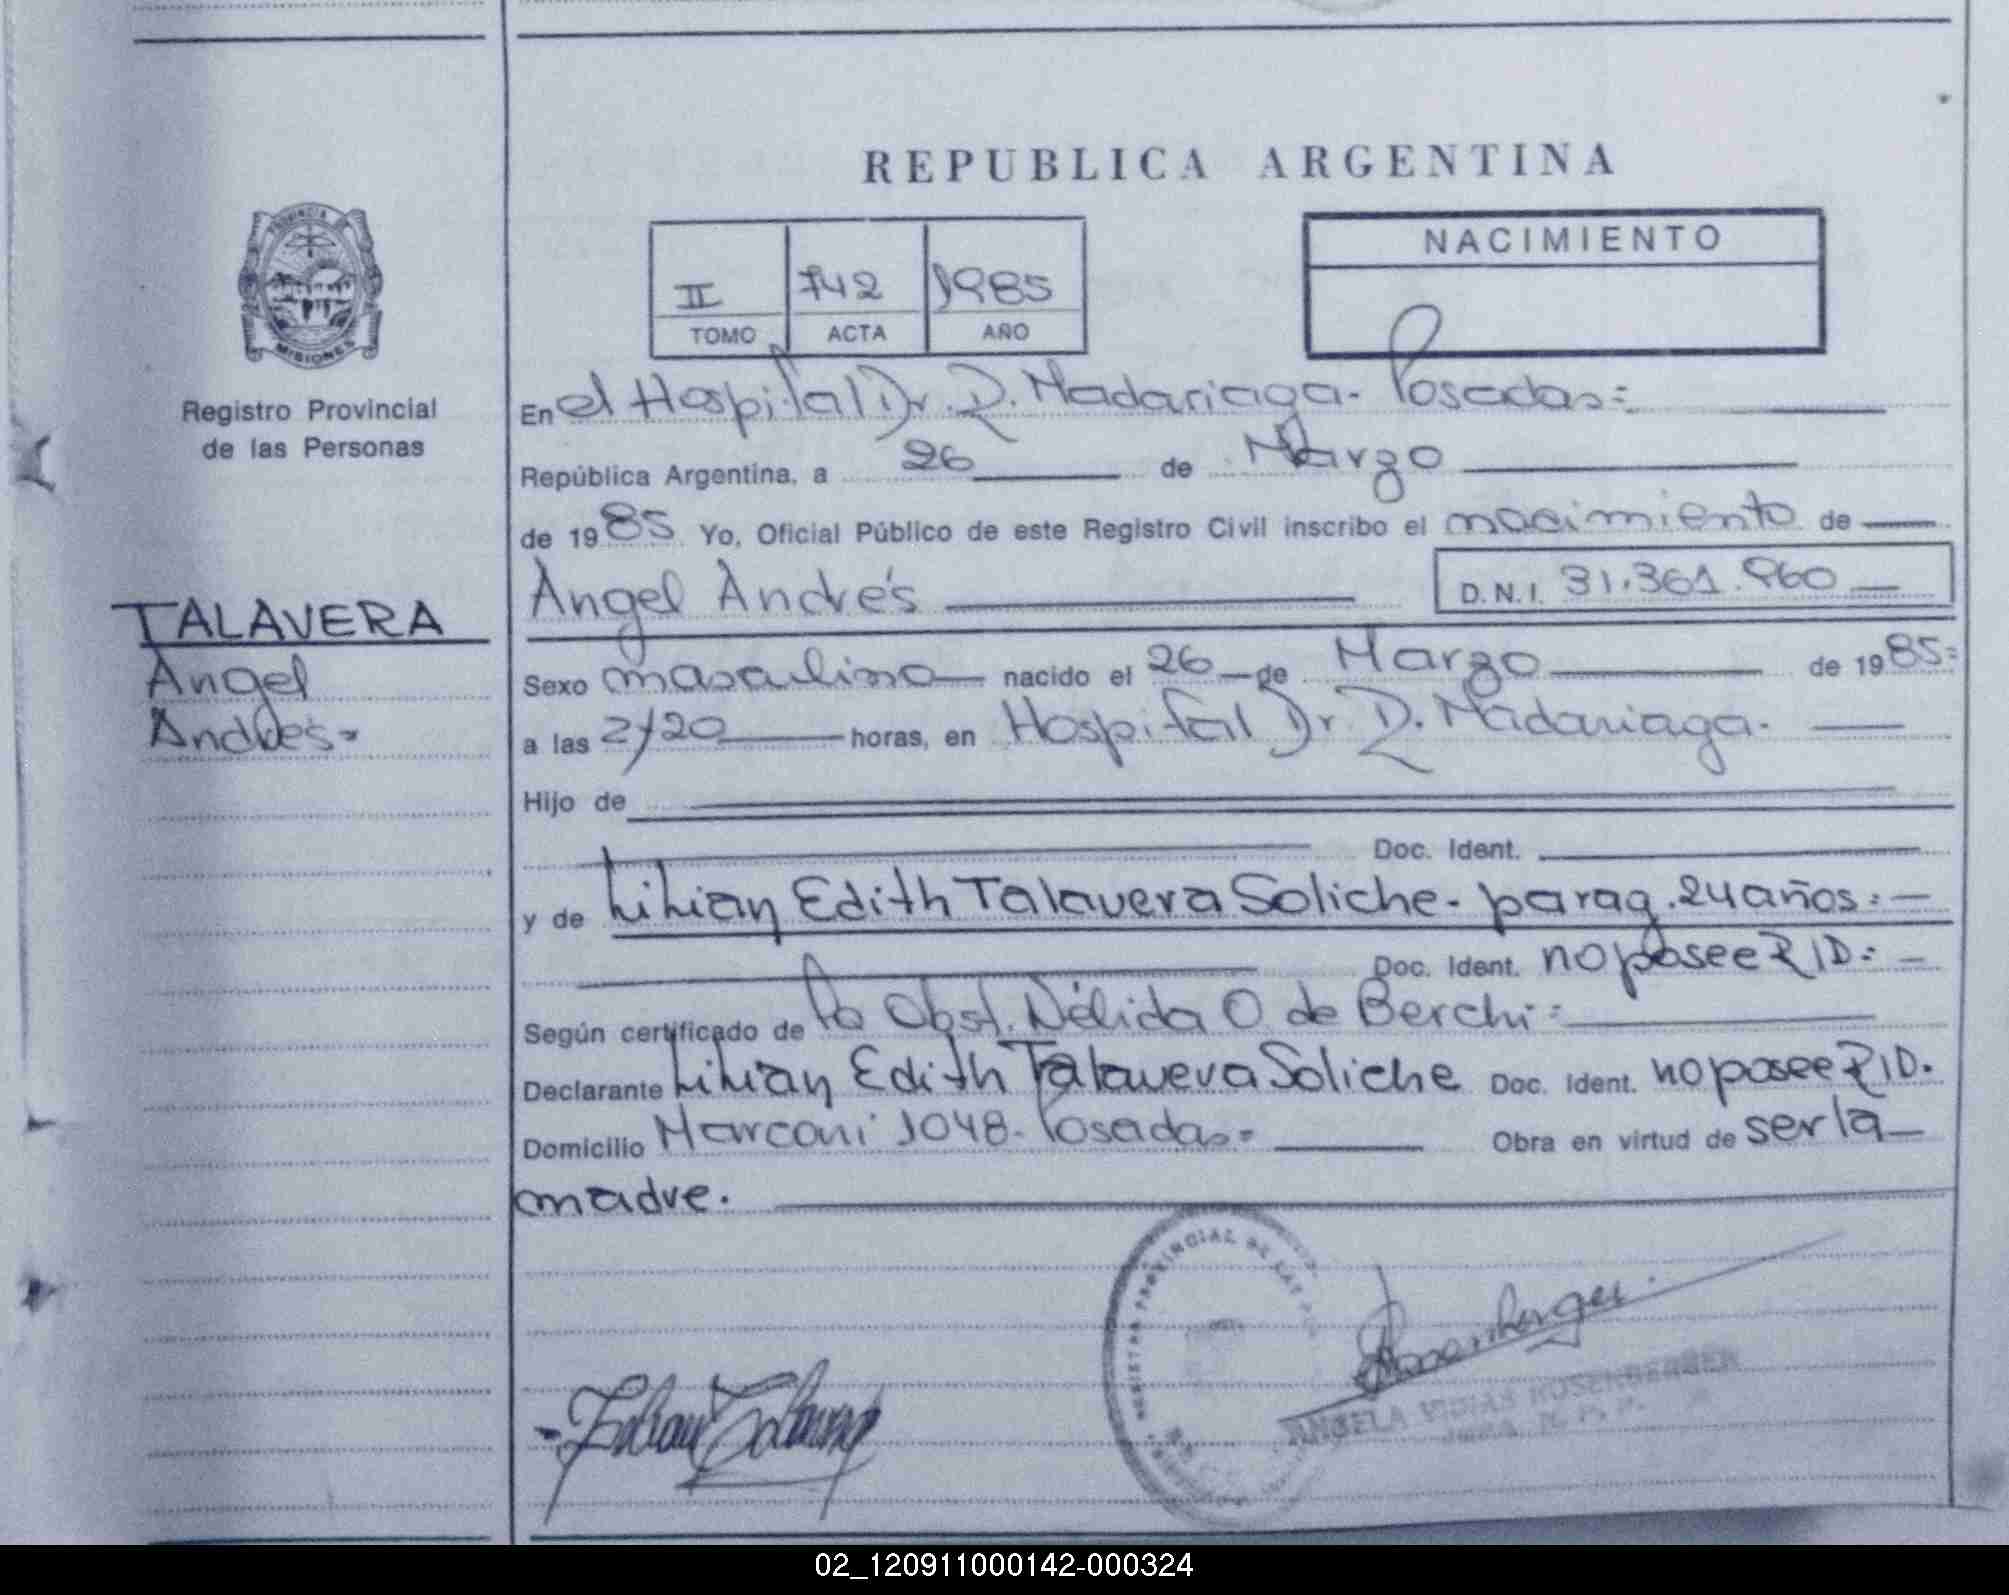 REPUBLICA ARGENTINA
PROVINCIA
MISIONES
Registro Provincial
de las Personas
TALAVERA
Angel
Andrés=
II 742 1985
TOMO ACTA AÑO
NACIMIENTO
En el Hospital Dr. R. Madariaga- Posadas=
República Argentina, a 26 de Marzo
de 1985 Yo, Oficial Público de este Registro Civil inscribo el nacimiento de
Angel Andrés D.N.I. 31.361.960
Sexo masculino nacido el 26 de Marzo de 1985=
a las 2/20 horas, en Hospital Dr. R. Madariaga.
Hijo de
Doc. Ident.
y de Lilian Edith Talavera Soliche- parag. 24 años.=
Doc. Ident. no posee R ID.=
Según certificado de la Obst. Nélida O de Berchi=
Declarante Lilian Edith Talavera Soliche Doc. Ident. no posee R ID.
Domicilio Marconi 1048- Posadas= Obra en virtud de ser la
madre.
PROVINCIAL DE LAS
ANGELA ROSENBERGER
02_120911000142-000324